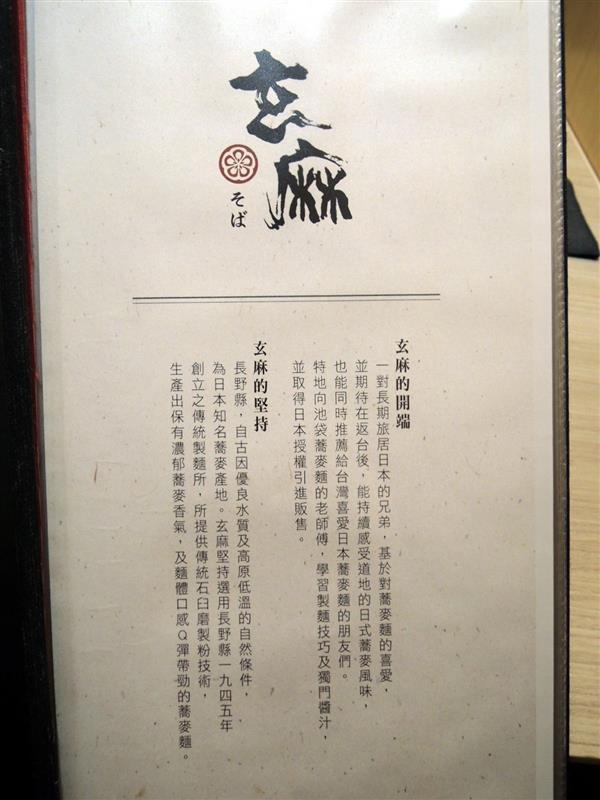 玄麻
そば
玄麻的開端
一對長期旅居日本的兄弟，基於對蕎麥麵的喜愛，
並期待在返台後，能持續感受道地的日式蕎麥風味，
也能同時推薦給台灣喜愛日本蕎麥麵的朋友們。
特地向池袋蕎麥麵的老師傅，學習製麵技巧及獨門醬汁，
並取得日本授權引進販售。
玄麻的堅持
長野縣，自古因優良水質及高原低溫的自然條件，
為日本知名蕎麥產地。玄麻堅持選用長野縣一九四五年
創立之傳統製麵所，所提供傳統石臼磨製粉技術，
生產出保有濃郁蕎麥香氣，及麵體口感Q彈帶勁的蕎麥麵。